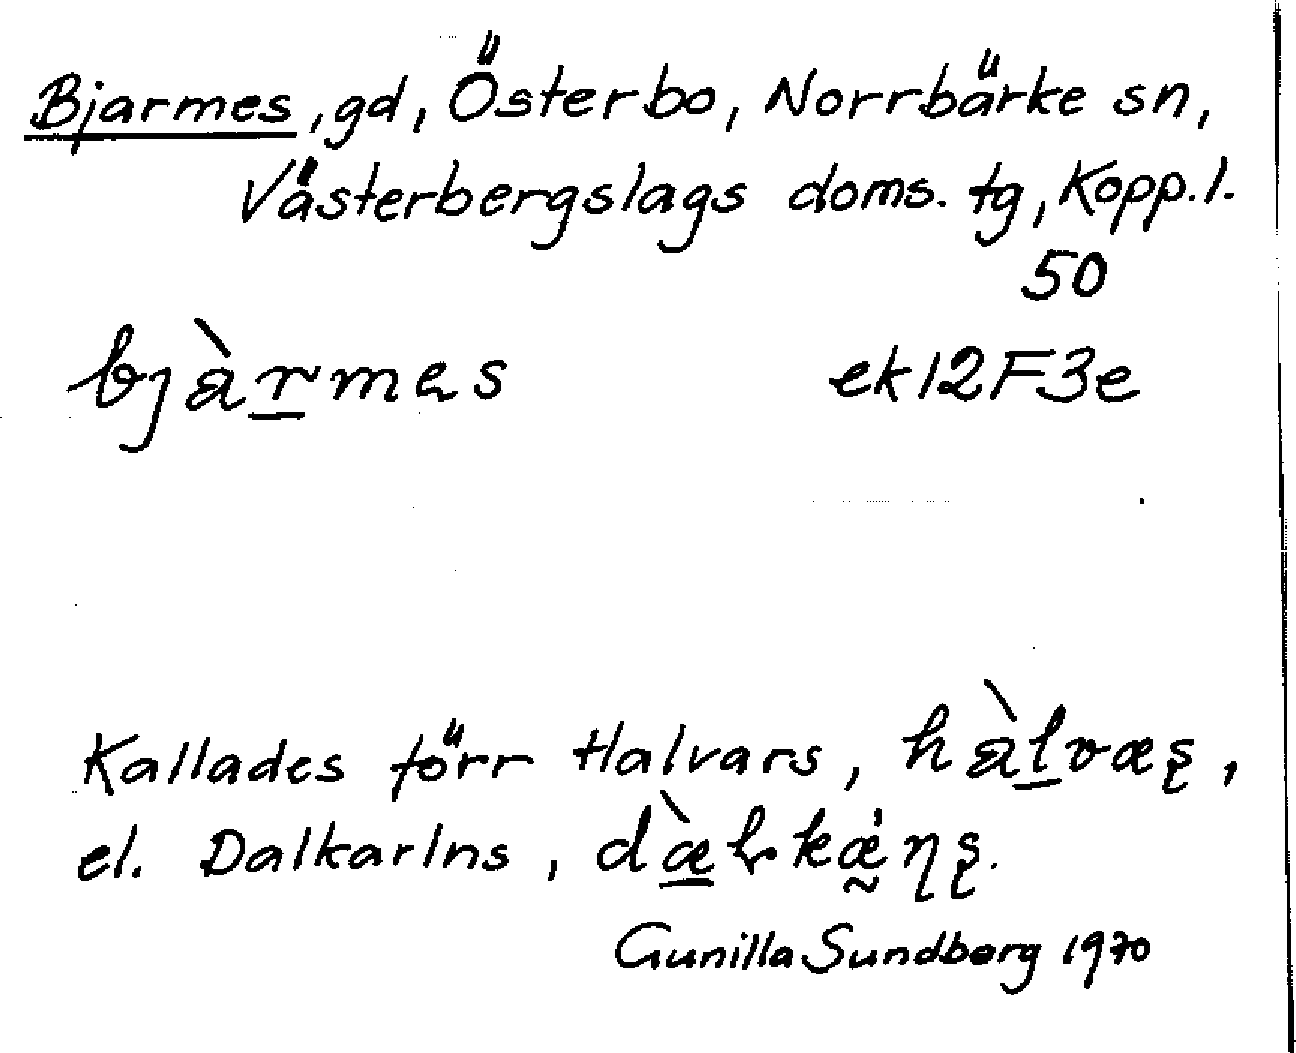 Bjarmes, gd, Österbo, Norrbärke sn,
Västerbergslags doms. tg, Kopp. l.
50
bjàr̲mes ek 12F3e
Kallades förr Halvars, hàl̲væʂ,
el. Dalkarlns, dæ̲̀ɽkæ̰̇ɳʂ.
Gunilla Sundberg 1970